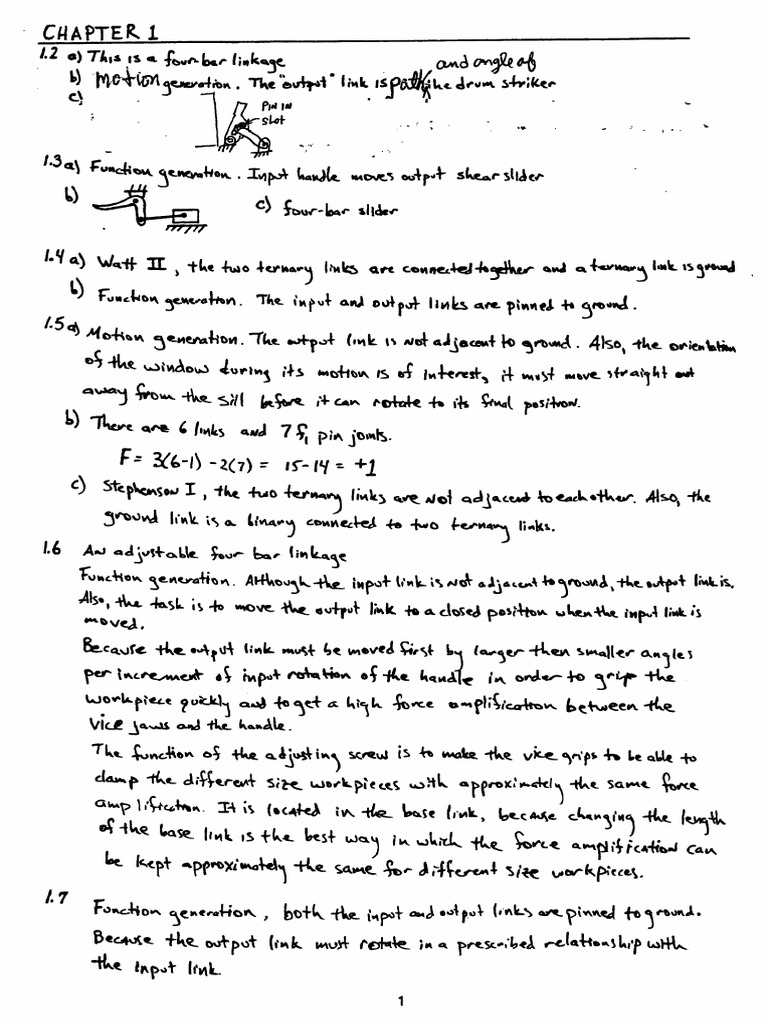 CHAPTER 1
1.2 a) This is a four-bar linkage
and angle of
b) Motion generation. The "output" link is path the drum striker
c)
Pin in
slot
1.3 a) Function generation. Input handle moves output shear slider
b)
c) four-bar slider
1.4 a) Watt II, the two ternary links are connected together and a ternary link is ground
b) Function generation. The input and output links are pinned to ground.
1.5 a) Motion generation. The output link is not adjacent to ground. Also, the orientation
of the window during its motion is of interest, it must move straight out
away from the sill before it can rotate to its final position.
b) There are 6 links and 7 f1 pin joints.
F = 3(6-1) - 2(7) = 15 - 14 = +1
c) Stephenson I, the two ternary links are not adjacent to each other. Also, the
ground link is a binary connected to two ternary links.
1.6 An adjustable four bar linkage
Function generation. Although the input link is not adjacent to ground, the output link is.
Also, the task is to move the output link to a closed position when the input link is
moved.
Because the output link must be moved first by larger then smaller angles
per increment of input rotation of the handle in order to grip the
workpiece quickly and to get a high force amplification between the
vice jaws and the handle.
The function of the adjusting screw is to make the vice grips to be able to
clamp the different size workpieces with approximately the same force
amplification. It is located in the base link, because changing the length
of the base link is the best way in which the force amplification can
be kept approximately the same for different size workpieces.
1.7 Function generation, both the input and output links are pinned to ground.
Because the output link must rotate in a prescribed relationship with
the input link.
1